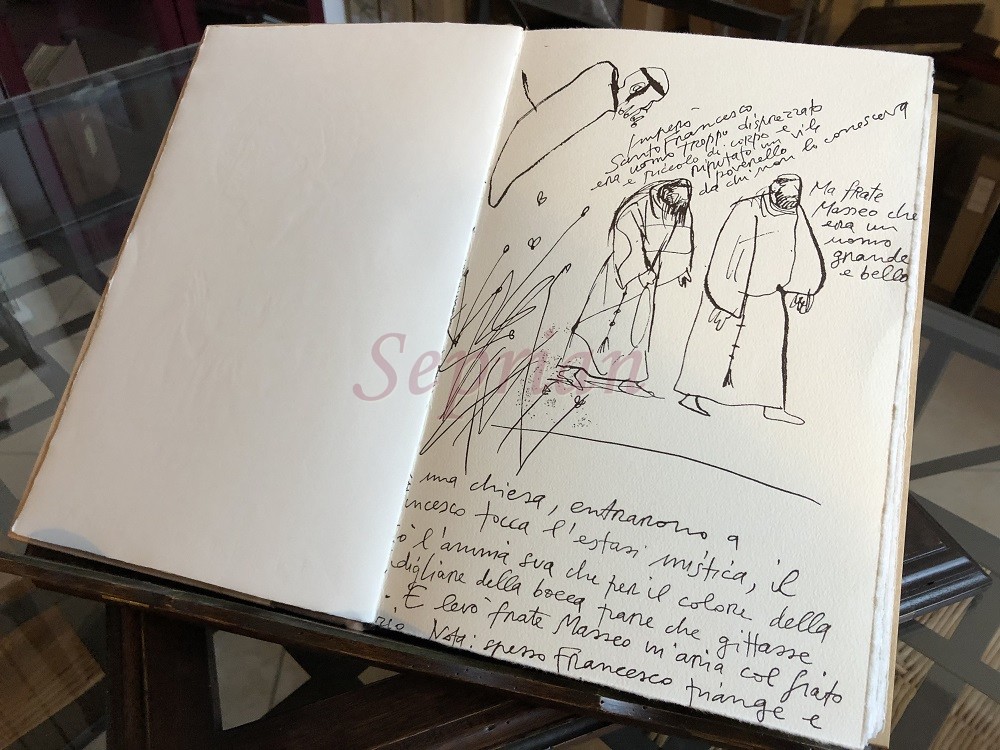 Imperò
Santo Francesco
era uomo troppo disprezzato
e piccolo di corpo e vile
riputato un
poverello
da chi non lo conosceva
Ma frate
Masseo che
era un
uomo
grande
e bello
Seprian
una chiesa, entrarono a
ncesco tocca l'estasi mistica, il
ò l'anima sua che per il colore della
digliare della bocca parve che gittasse
. E levò frate Masseo in aria col fiato
rio. Nota: spesso Francesco piange e